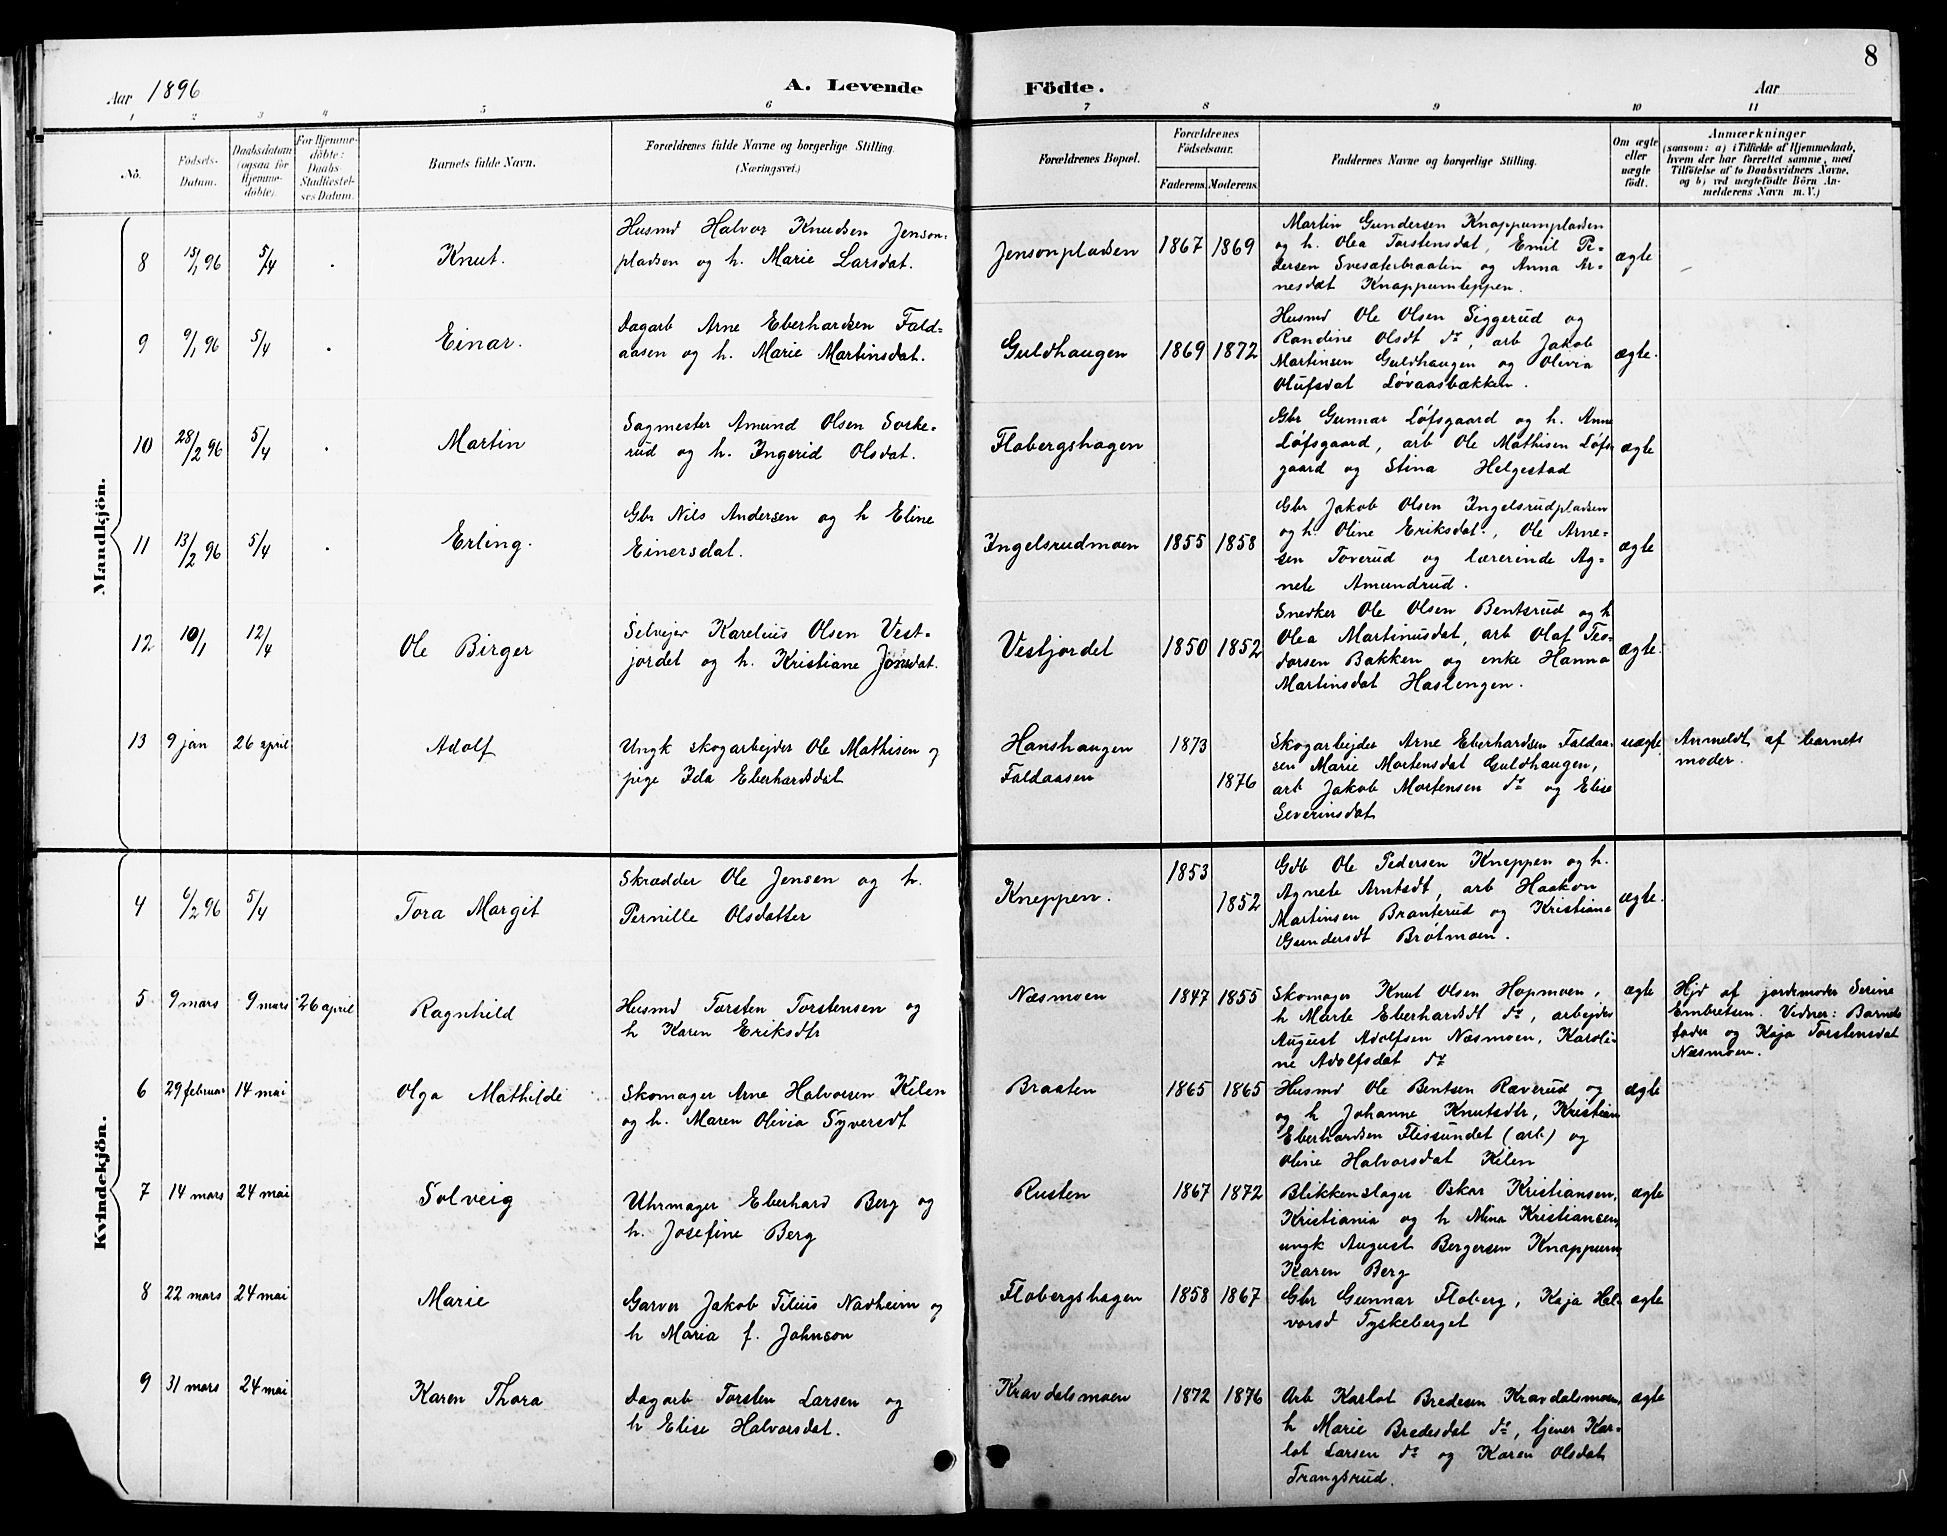 8
Aar 1896
A. Levende
Födte.
Aar
1 2 3 4 5 6 7 8 9 10 11
No.
Födsels-
Datum.
Daabsdatum
(ogsaa for
Hjemme-
döbte).
For Hjemme-
döbte:
Daabs-
Stadfæstel-
ses Datum.
Barnets fulde Navn.
Forældrenes fulde Navne og borgerlige Stilling.
(Næringsvei.)
Forældrenes Bopæl.
Forældrenes
Födselsaar.
Faderens. Moderens.
Faddernes Navne og borgerlige Stilling.
Om ægte
eller
uægte
födt.
Anmærkninger
(saasom: a) i Tilfælde af Hjemmedaab,
hvem der har forrettet samme, med
Tilföielse af to Daabsvidners Navne,
og b) ved uægtefödte Börn An-
melderens Navn m. V.)
Mandkjön.
8 15/1 96 5/4 . Knut.
Husmd Halvor Knudsen Jenson-
pladsen og h. Marie Larsdat.
Jensonpladsen 1867 1869
Martin Gundersen Knappumpladsen
og h. Olea Torstensdat, Emil Pe-
dersen Svesæterbraaten og Anna Ar-
nesdat Knappumteppen.
ægte
9 9/1 96 5/4 . Einar.
Dagarb Arne Eberhardsen Fald-
aasen og h. Marie Martinsdat.
Guldhaugen 1869 1872
Husmd Ole Olsen Siggerud og
Randine Olsdt do, arb Jakob
Martinsen Guldhaugen og Olivia
Olufsdat Løvaasbækken.
ægte.
10 28/2 96 5/4 . Martin
Sagmester Amund Olsen Sorke-
rud og h. Ingerid Olsdat.
Flobergshagen
Gbr Gunnar Løfsgaard og h. Anne
Løfsgaard, arb Ole Mathisen Løfs-
gaard og Stina Helgestad
ægte
11 13/2 96 5/4 . Erling.
Gbr Nils Andersen og h Eline
Einersdat.
Ingelsrudmoen 1855 1858
Gbr Jakob Olsen Ingelsrudpladsen
og h. Oline Eriksdat., Ole Arne-
sen Toverud og lærerinde Ag-
nete Amundrud.
ægte
12 10/1 12/4 Ole Birger
Selvejer Karelius Olsen Vest-
jordet og h. Kristiane Jonsdat.
Vestjordet 1850 1852
Snedker Ole Olsen Bentsrud og h
Olea Martinusdat, arb Olaf Teo-
dorsen Bakken og enke Hanna
Martinsdat Haslengen.
ægte.
13 9 jan 26 april Adolf
Ungk skogarbejder Ole Mathisen og
pige Ida Eberhardsdat
Hanshaugen
Faldaasen
1873
1876
Skogarbejder Arne Eberhardsen Faldaa-
sen Marie Mortensdat Guldhaugen,
arb Jakob Mortensen do og Elise
Severinsdat
uægte
Anmeldt af barnets
moder.
Kvindekjön.
4 6/2 96 5/4 Tora Margit
Skrædder Ole Jensen og h.
Pernille Olsdatter
Kneppen.
1853
1852
Gdb Ole Pedersen Kneppen og h.
Agnete Arntsdt, arb Haakon
Martinsen Branterud og Kristiane
Gundersdt Brøtmoen.
ægte.
5 9 mars 9 mars 26 april Ragnhild
Husmd Torsten Torstensen og
h Karen Eriksdtr
Næsmoen 1847 1855
Skomager Knut Olsen Hopmoen,
h Marte Eberhardsdt do, arbejder
August Adolfsen Næsmoen, Karoli-
ne Adolfsdat do
ægte
Hjd af jordemoder Serine
Embretsen. Vidner: Barnets
fader og Kaja Torstensdat
Næsmoen.
6 29 februar 14 mai Olga Mathilde
Skomager Arne Halvorsen Kilen
og h. Maren Olivia Syversdt
Braaten 1865 1865
Husmd Ole Bentsen Ræverud og
og h Johanne Knutsdtr, Kristian
Eberhardsen Flissundet (arb) og
Oline Halvorsdat Kilen
ægte
7 14 mars 24 mai Solveig
Uhrmager Eberhard Berg og
h. Josefine Berg
Rusten 1867 1872
Blikkenslager Oskar Kristiansen,
Kristiania og h Mina Kristiansen,
ungk August Bergersen Knappum
Karen Berg
ægte
8 22 mars 24 mai Marie
Garver Jakob Tilius Nadheim og
h Maria f. Johnson
Flobergshagen 1858 1867
Gbr Gunnar Floberg, Kaja Hal-
vorsd Tyskeberget
ægte
9 31 mars 24 mai Karen Thora
Dagarb Torsten Larsen og
h Elise Halvorsdat.
Kravdalsmoen 1872 1876
Arb Karlot Bredesen Kravdalsmoen,
h Marie Bredesdat do, tjener Kar-
lot Larsen do og Karen Olsdat
Trangsrud.
ægte